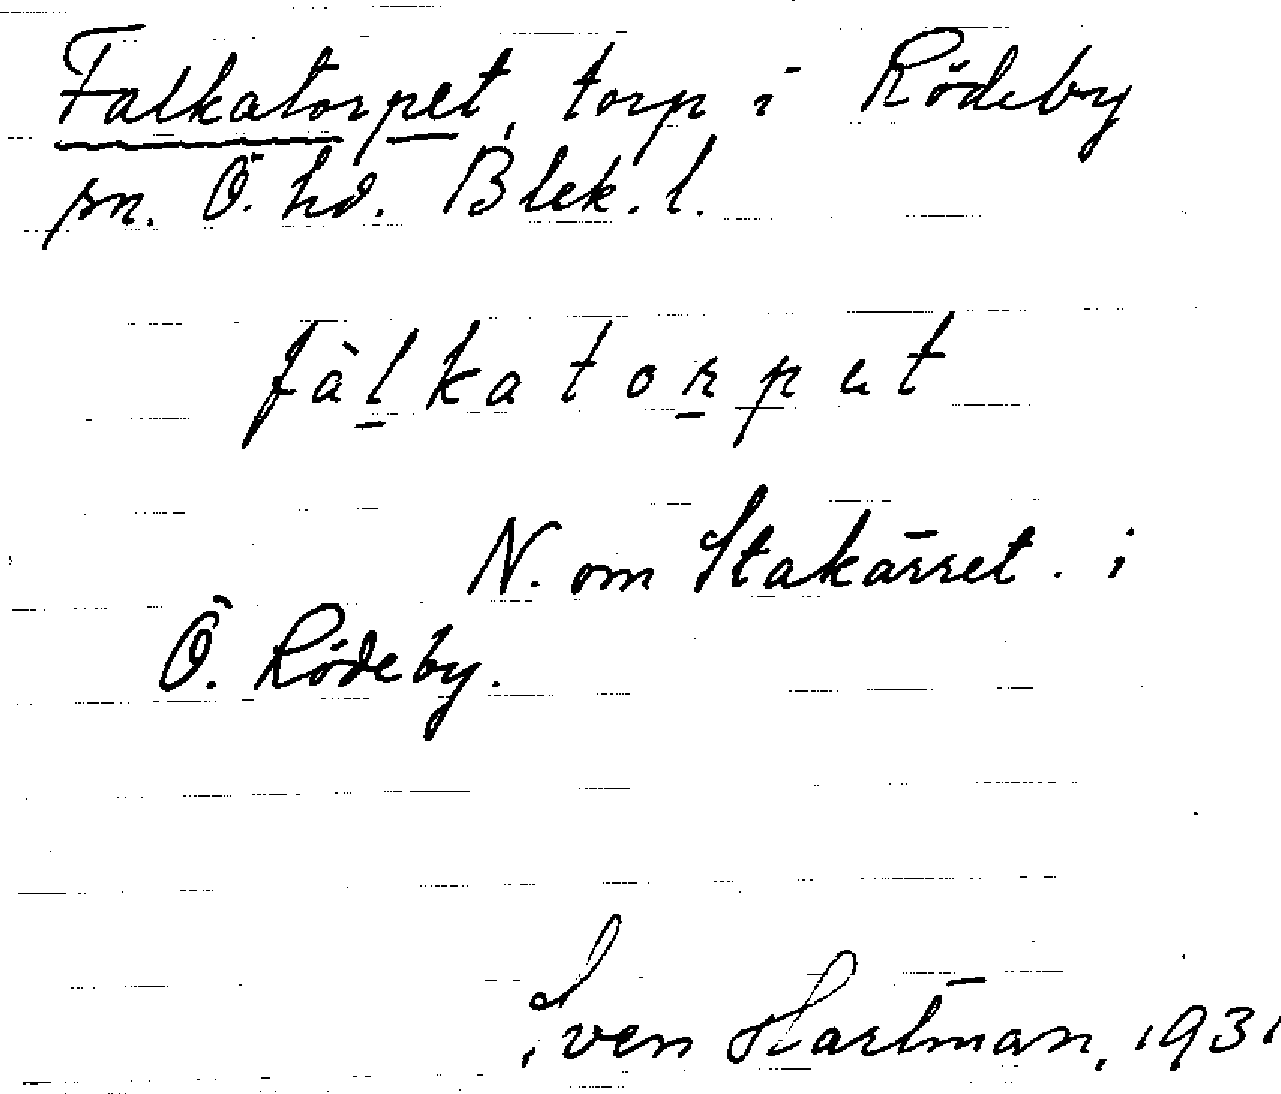 Falkatorpet, torp i Rödeby
sn. Ö. hd. Blek. l.
fàlkatorpet
N. om Stakärret. i
Ö. Rödeby.
Sven Hartman, 1931